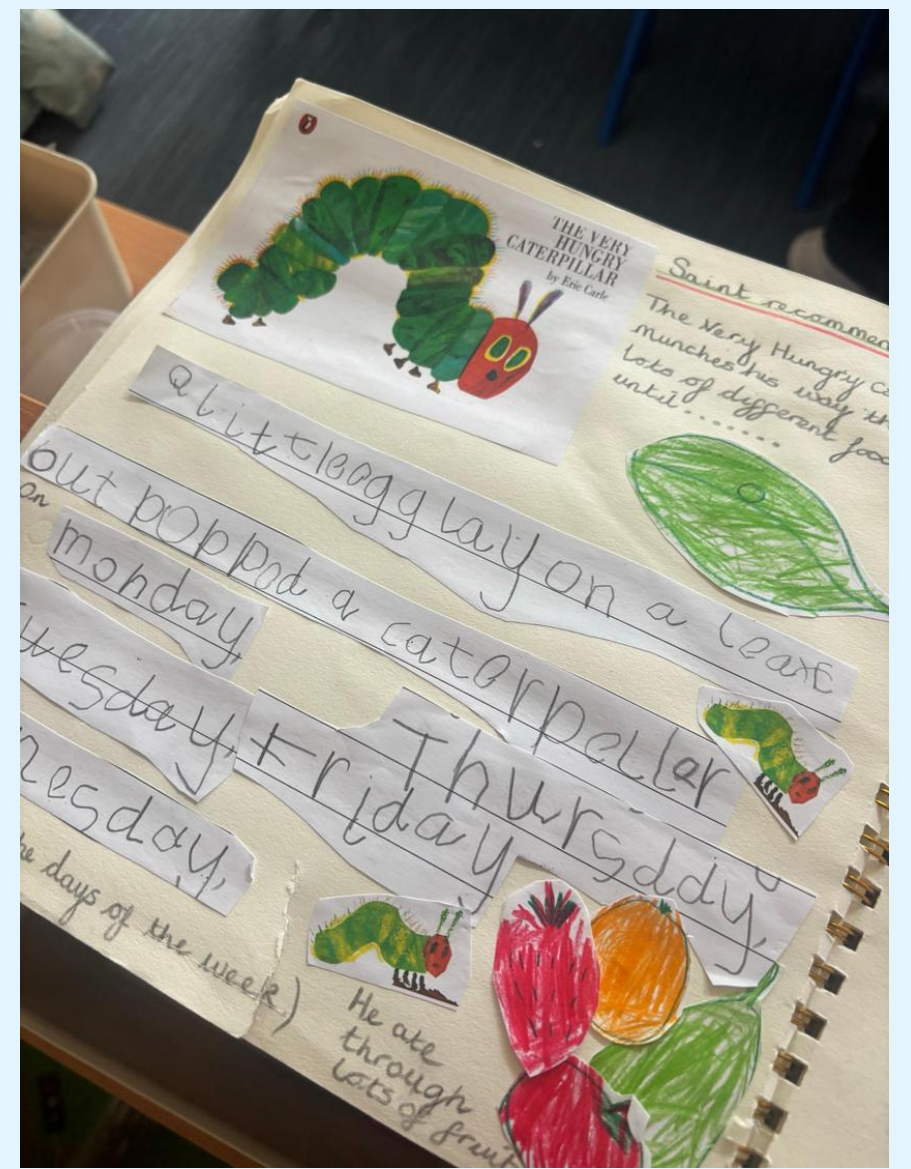 THE VERY
HUNGRY
CATERPILLAR
by Eric Carle
Saint recommen
The Very Hungry ca
munches his way th
lots of different food
until......
a little egg lay on a leaf
out popped a caterpellar
on
monday,
uesday,
Thursday,
Friday
nesday,
he days of the week)
He ate
through
lots of fruit